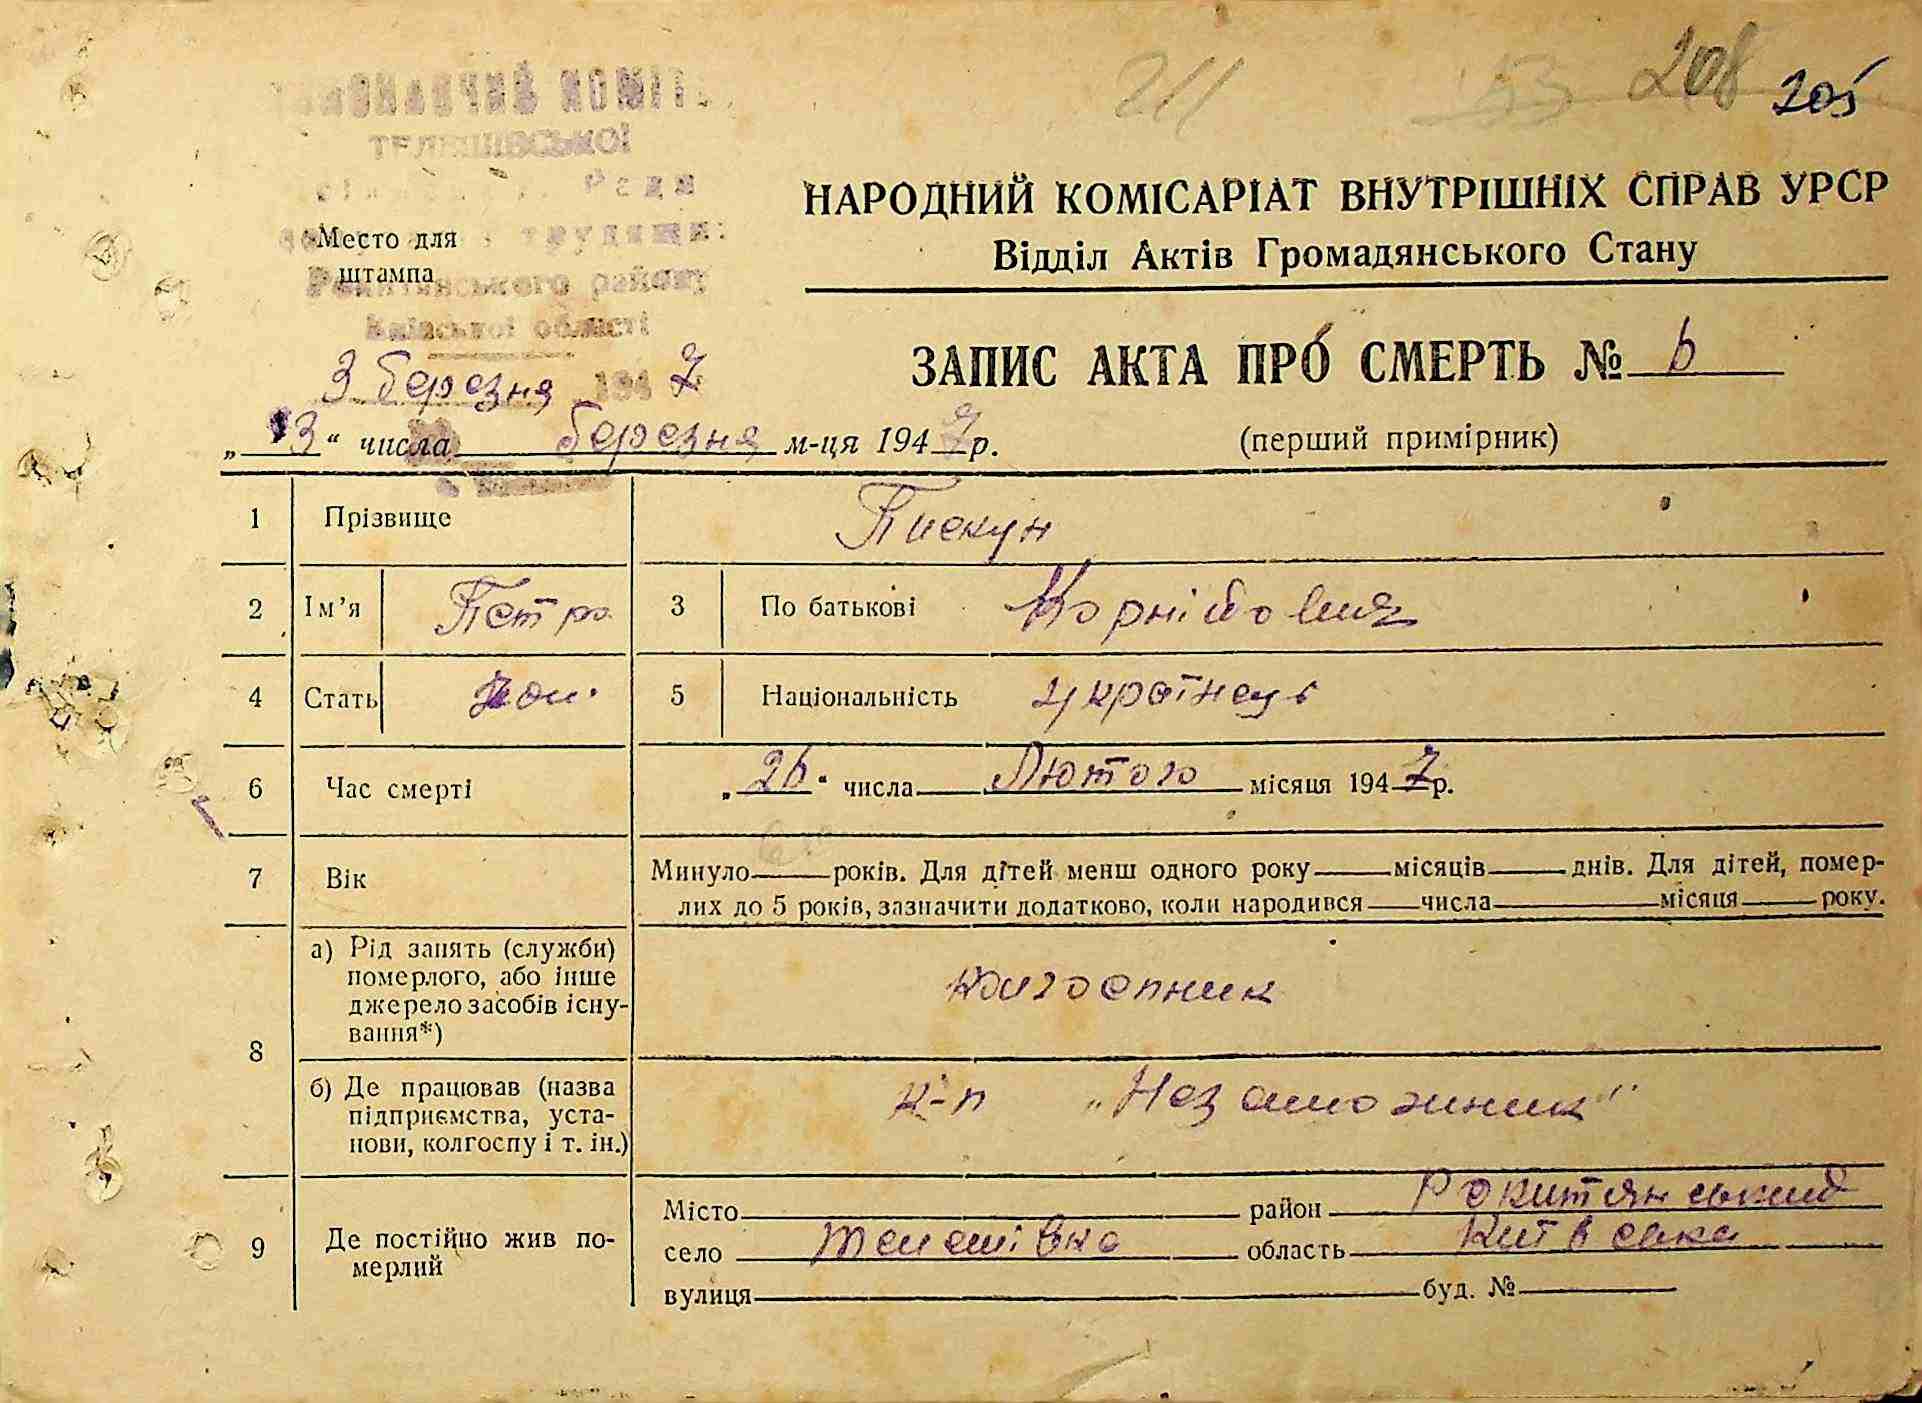 211 53 208 205
ВИКОНАВЧИЙ КОМІТЕТ
ТЕЛЕШІВСЬКОЇ
Ради
трудящих
Рокитянського району
Київської області
3 березня 1947
Место для
штампа
НАРОДНИЙ КОМІСАРІАТ ВНУТРІШНІХ СПРАВ УРСР
Відділ Актів Громадянського Стану
ЗАПИС АКТА ПРО СМЕРТЬ № 6
„ 3 “ числа березня м-ця 1947 р.
(перший примірник)
1 Прізвище Пискун
2 Ім’я Петро 3 По батькові
4 Стать чол. 5 Національність українець
6 Час смерті „ 26 “ числа Лютого місяця 1947 р.
7 Вік Минуло років. Для дітей менш одного року місяців днів. Для дітей, помер-
лих до 5 років, зазначити додатково, коли народився числа місяця року.
8 а) Рід занять (служби)
померлого, або інше
джерело засобів існу-
вання*)
колгоспник
б) Де працював (назва
підприємства, уста-
нови, колгоспу і т. ін.)
к-п „Незаможник“
9 Де постійно жив по-
мерлий
Місто район Рокитянський
село Телешівка область Київська
вулиця буд. №